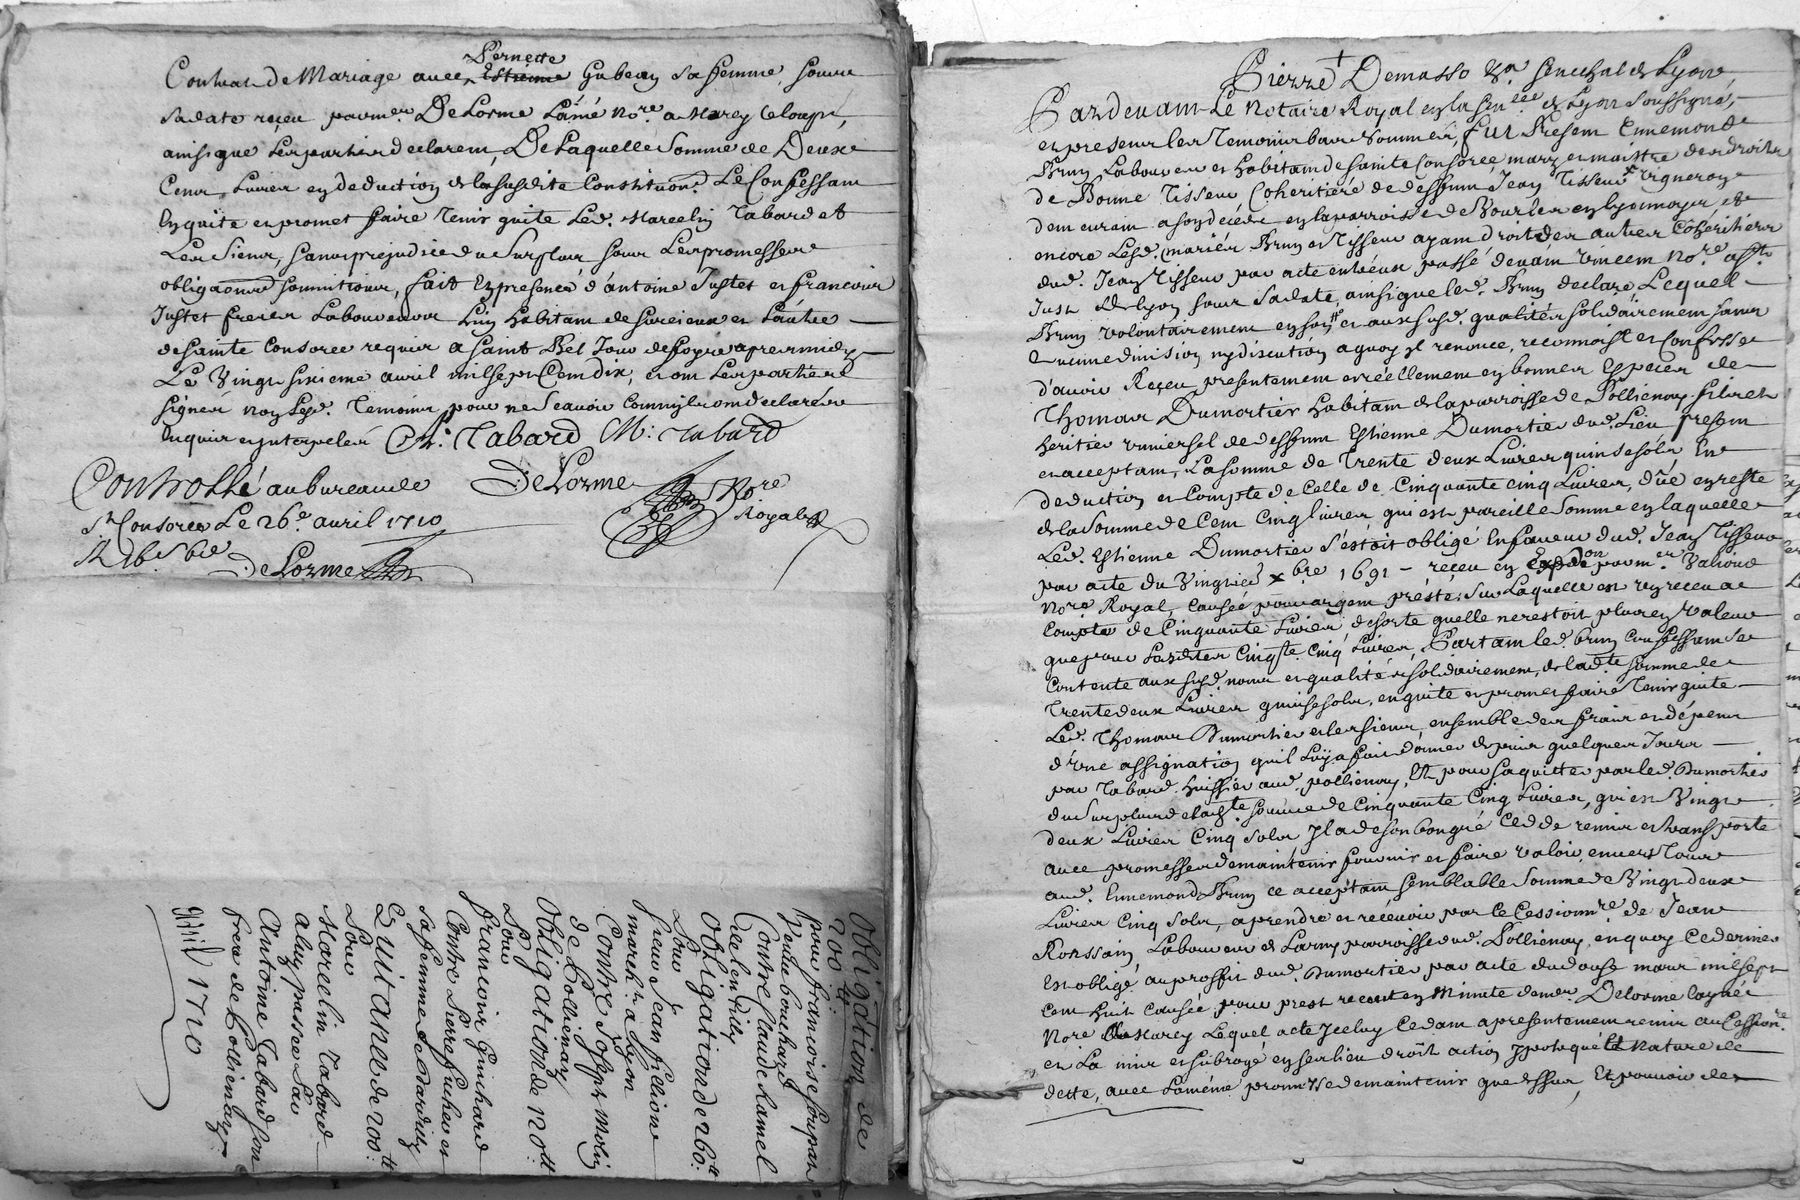 Contrat de Mariage avec Pernette Gubean sa femme, soubz
sa date reçeu par mer DeLorme L'aîné No.re a Marcy Leloup,
ainsi que Les parties declarent, De Laquelle somme de Deux
Cent Livres en deduction de la susdite Constitution. Le Confessant
En quite et promet faire tenir quite Led. Marcelin Tabard et
Les Siens, sans prejudice du Surplus soubz Les promesses
obligaõns soumitions, fait En presence d'antoine Justet et francois
Justet freres Laboureurs L'un habitant de Sourcieux et L'autre
de sainte Consorce requis a saint Bel Jour de foyre apres midy
Le Vingt sixieme avril mil sept Cent dix, et ont Les parties
signé non Les d. temoins pour ne Scavoir Comm'ils ont declaré
Enquis et interpelés Tabard M: Tabard
Controllé au bureau de DeLorme No.re
S.te Consorce Le 26.e avril 1710 Royal
R
DeLorme
Obligation de
200 tt.
pour francoise soupat
veuve bouchard
Contre Claude Ramel
de Lentilly
Obligation de 260: tt
Pour
sieur Jean fillion
march.t a Lyon
Contre Joseph Molin
de Pollienay
Obligation de 120 tt
Pour
francois Guichard
Contre Pierre fucher et
sa femme de Dardilly
Quitance de 200: tt
Pour
Marcelin Tabard
a luy passée Par
Antoine Tabard son
frere de Pollienay
avril 1710
Pierre Demasso Sén.al de Lyon
Pardevant Le Notaire Royal en la Sen.cee de Lyon soussigné,
et presents les Temoins bas nommés, fut Present Ennemond
Brun Laboureur et habitant de sainte Consorce mary et maistre des droits
de Bonne Tisseur Coheritiere de deffunt Jean Tisseur vigneron
demeurant a son décés en la parroisse de Bourler en lyonnoyer, et
encore Lesd. mariés Brun et Tisseur ayant droit des autres Cohéritiers
dud. Jean Tisseur par acte entreux passé devant Vincent No.re a St
Just de Lyon sous sa date, ainsi que led. Brun declare Lequel
Brun volontairement en son et aux susd. qualités solidairement sans
aucune division ny discution a quoy il renonce, reconnoist et Confesse
d'avoir Reçeu presentement et réellement en bonnes Especes de
Thomas Dumortier habitant de la parroisse de Pollienay fils et
heritier universel de deffunt Estienne Dumortier dud. Lieu present
et acceptant, La somme de trente deux Livres quinse sols En
deduction et Compte de Celle de Cinquante cinq Livres, dûe en reste
de la Somme de Cent Cinq livres qui est pareille somme en laquelle
Led. Estienne Dumortier s'estoit obligé En faveur dud. Jean Tisseur
par acte du Vingt xbre 1691 - reçeu en Expedon par m.er Valioud
No.re Royal, Causée pour argent presté; sur Laquelle est reçeu a
Compte de Cinquante Livres, desorte quelle ne restoit plus en valeur
que pour Lesdites Cinq.te Cinq Livres, Partant led. brun Confessant se
Contente aux susd. noms et qualités solidairement, de lad.te somme de
Trente deux Livres quinse sols, en quite et promet faire tenir quite
Led. Thomas Dumortier et les siens, ensemble des frais et dépens
d'une assignation qu'il Luy a fait donner depuis quelques Jours
par Tabard huissier aud. pollienay, Et pour s'aquitter par led. Dumortier
du Surplus de lad.te somme de Cinquante Cinq Livres, qui est Vingt
deux Livres Cinq sols Jl a de son bon gré Cedde remis et transporte
avec promesse de maintenir fournir et faire valoir envers tous
aud. Ennemond Brun ce acceptant semblable Somme de Vingt deux
Livres Cinq sols, a prendre et recevoir par le Cessionn.re de Jean
Ronssain Laboureur de Larny parroisse dud. Pollienay, en quoy Ce dernier
Est obligé au proffit dud. Dumortier par acte du douse mars mil sept
cent huit causée pour prest receu en Minute de mer. Delorme l'aynée
No.re de Marcy Lequel acte Jceluy Cedant a presentement remis au Cession.re
et La mis et subrogé en son lieu droit action ypoteque Et nature de
dette, avec La même promesse de maintenir que dessus, Et pouvoir de